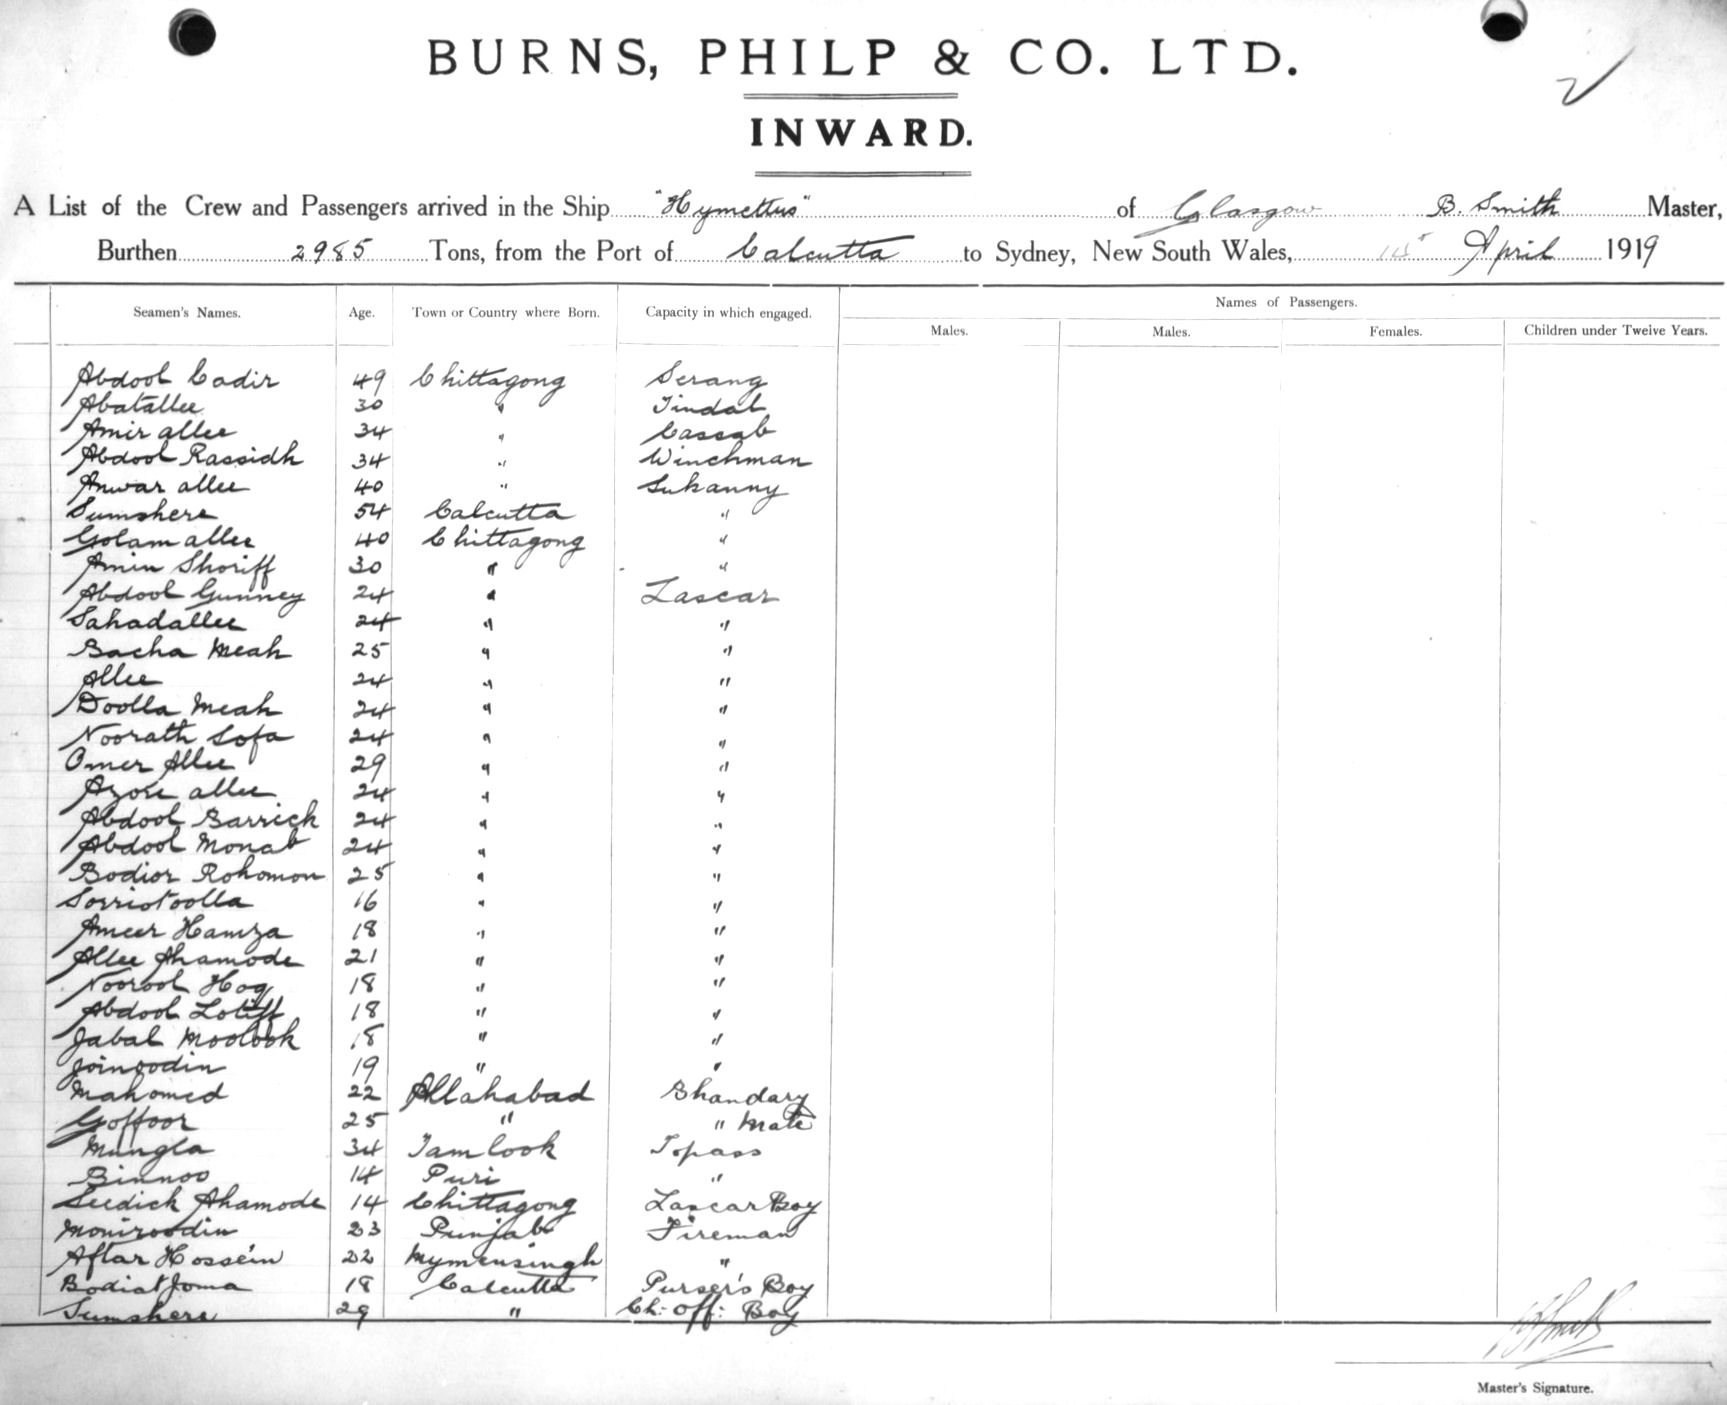 BURNS, PHILP & CO. LTD.
INWARD.
A List of the Crew and Passengers arrived in the Ship "Hymettus" of Glasgow B. Smith Master,
Burthen 2985 Tons, from the Port of Calcutta to Sydney, New South Wales, 15 April 1919
Names of Passengers.
Seamen's Names. Age. Town or Country where Born. Capacity in which engaged. Males. Males. Females. Children under Twelve Years.
Abdool Cadir 49 Chittagong Serang
Abatallee 30 " Tindal
Amir allee 34 " Cassab
Abdool Rassidh 34 " Winchman
Anwar allee 40 " Sukanny
Sumshere 54 Calcutta "
Golam allee 40 Chittagong "
Amin Shoriff 30 " "
Abdool Gunney 24 " Lascar
Sahadallee 24 " "
Bacha Meah 25 " "
Allee 24 " "
Doolla Meah 24 " "
Noorath Sofa 24 " "
Omer Allee 29 " "
Azore allee 24 " "
Abdool Barrick 24 " "
Abdool Monab 24 " "
Bodior Rohomon 25 " "
Sorriotoolla 16 " "
Ameer Hamza 18 " "
Allee Ahamode 21 " "
Noorool Hog 18 " "
Abdool Lotiff 18 " "
Jabal Moolook 18 " "
Joinoodin 19 " "
Mahomed 22 Allahabad Bhandary
Goffoor 25 " " Mate
Mungla 34 Tamlook Topass
Binnoo 14 Puri "
Seedick Ahamode 14 Chittagong Lascar Boy
Moniroodin 23 Punjab Fireman
Aftar Hossein 22 Mymensingh "
Bodiat Joma 18 Calcutta Purser's Boy
Sumshere 29 " Ch: Off: Boy
B Smith
Master's Signature.